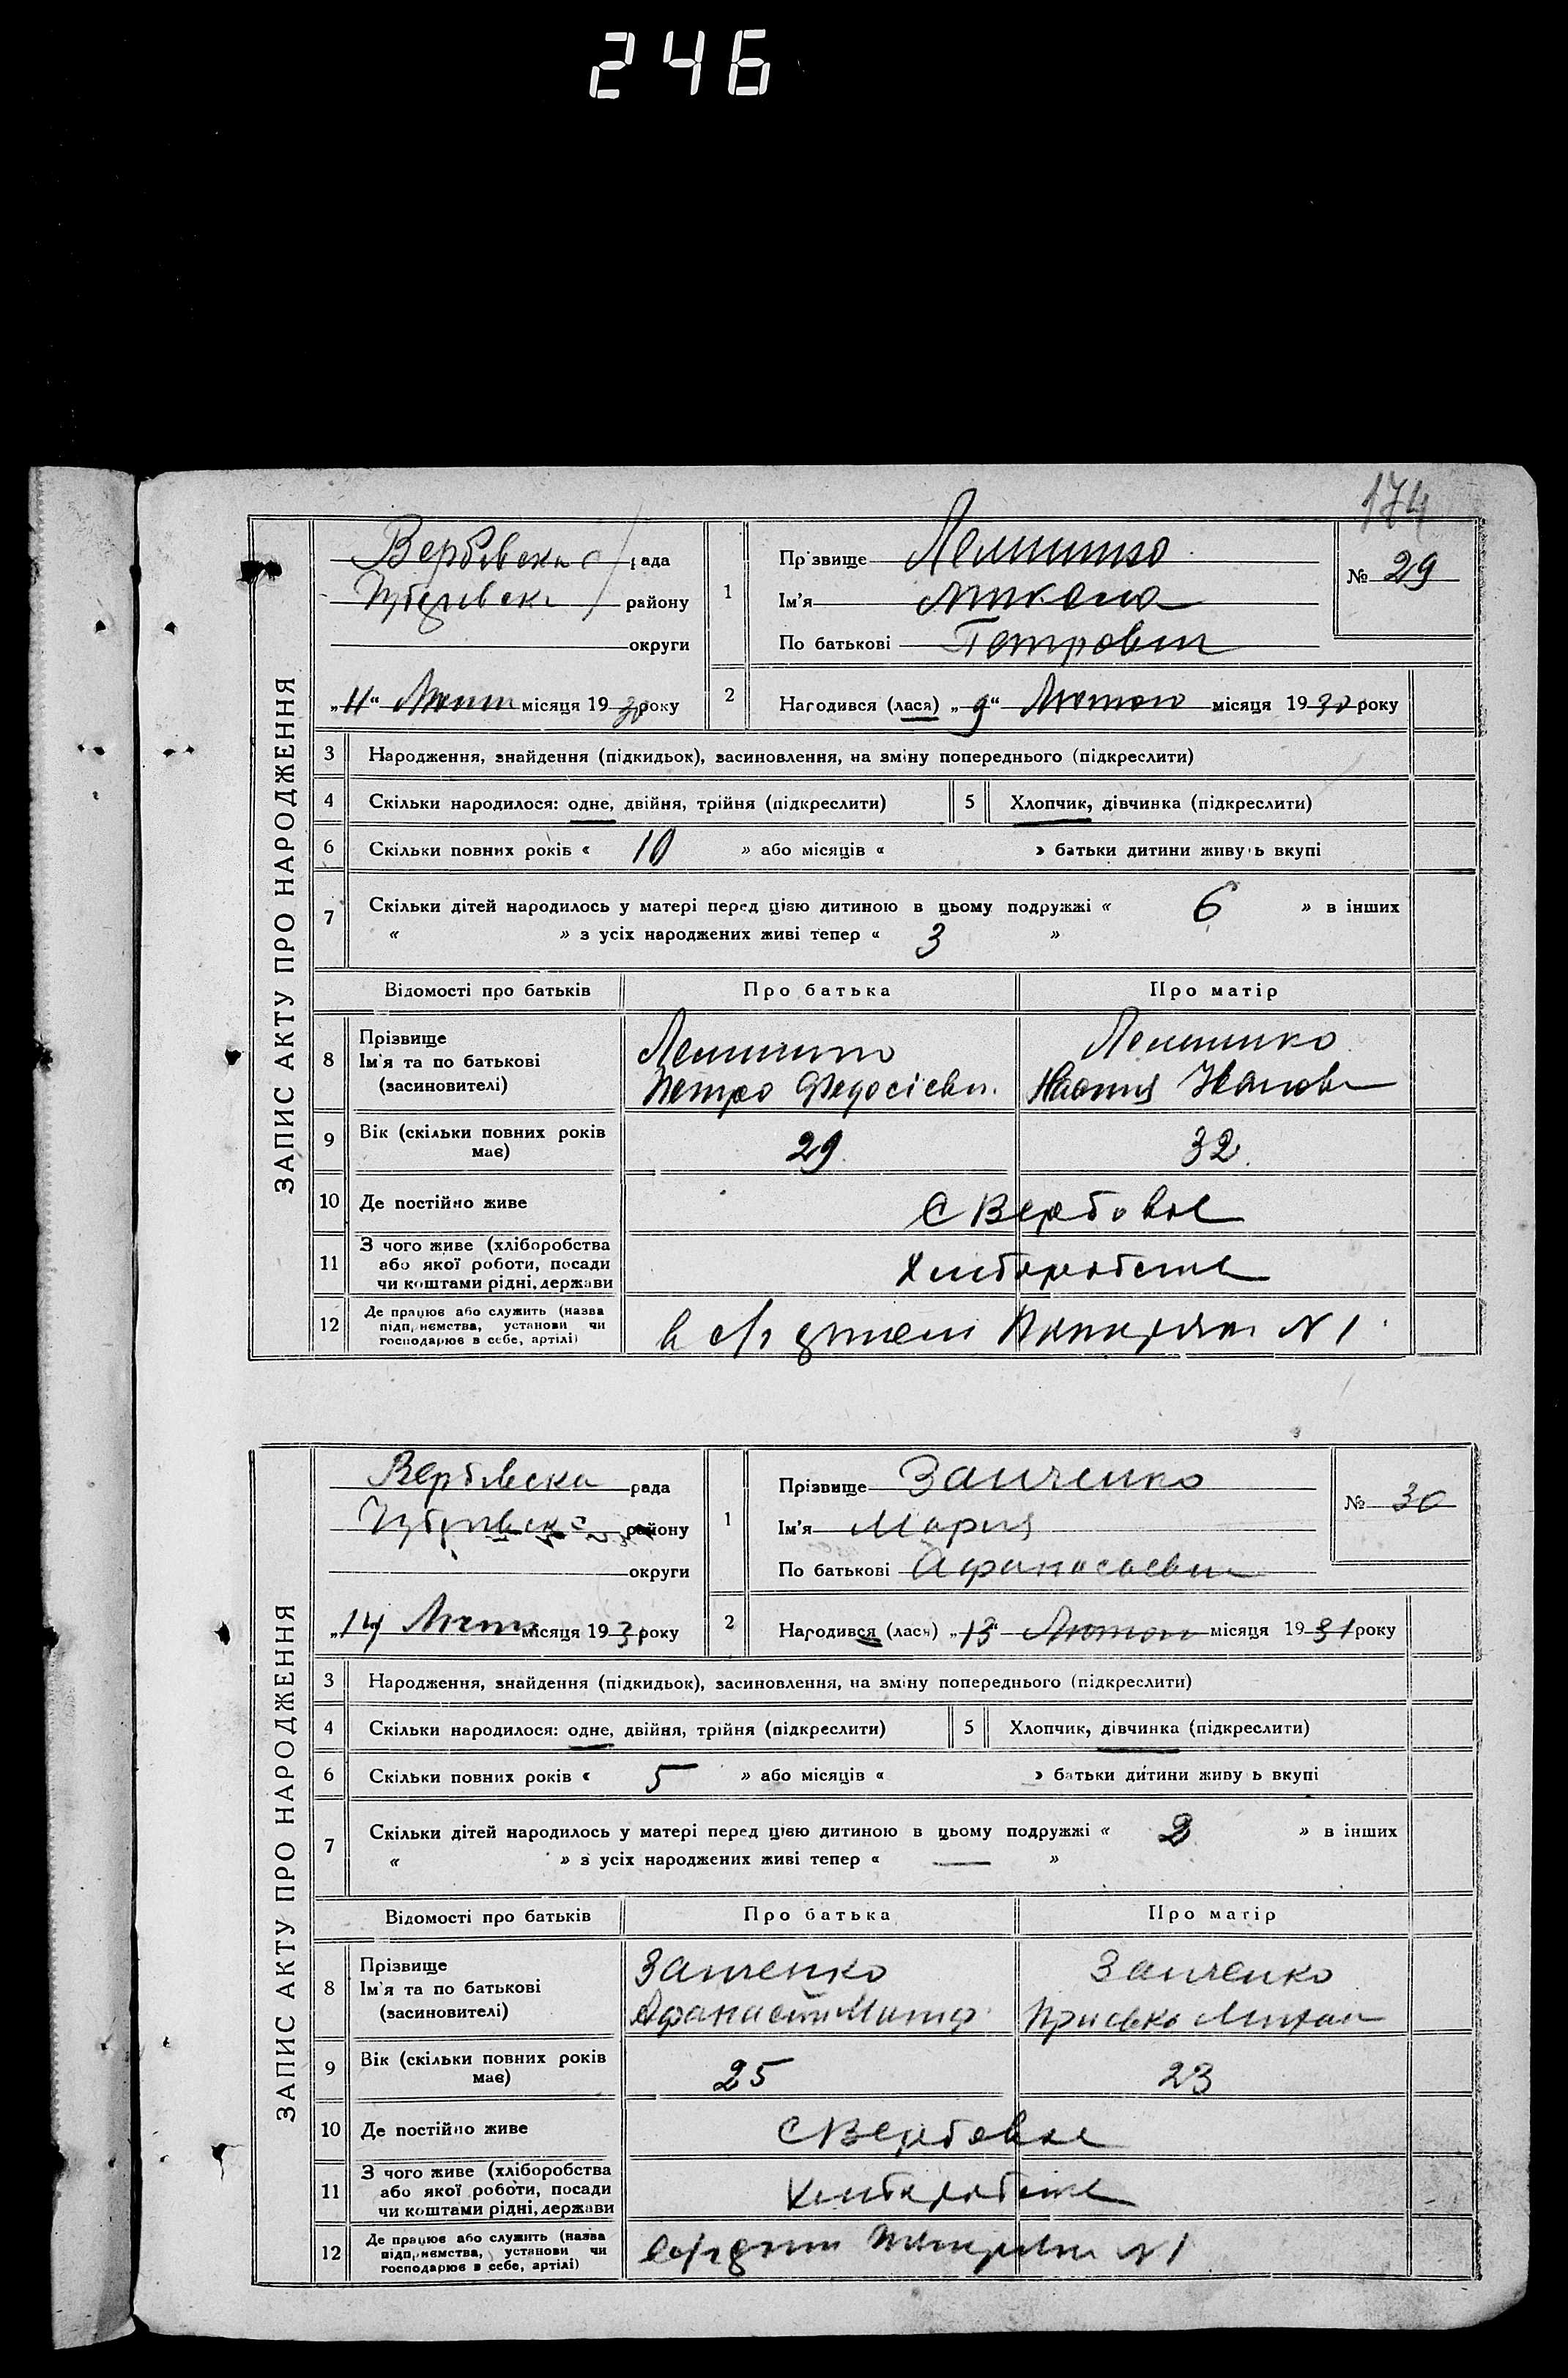 246
174
ЗАПИС АКТУ ПРО НАРОДЖЕННЯ
Вербівська с/рада
району
округи
„11“ Лютого місяця 1930року
1
Прізвище
Ім'я Микола
По батькові Петрович
№ 29
2 Народився (лася) „9“ Лютого місяця 1930року
3 Народження, знайдення (підкидьок), засиновлення, на зміну попереднього (підкреслити)
4 Скільки народилося: одне, двійня, трійня (підкреслити) 5 Хлопчик, дівчинка (підкреслити)
6 Скільки повних років « 10 » або місяців « » батьки дитини живуть вкупі
7 Скільки дітей народилось у матері перед цією дитиною в цьому подружжі « 6 » в інших
« » з усіх народжених живі тепер « 3 »
Відомості про батьків Про батька Про матір
8 Прізвище
Ім'я та по батькові
(засиновителі)
Петро Федосієв.
9 Вік (скільки повних років має) 29. 32.
10 Де постійно живе С Вербовое
11 З чого живе (хліборобства
або якої роботи, посади
чи коштами рідні, держави
12 Де працює або служить (назва
підприємства, установи чи
господарює в себе, артілі)
в с/г N 1
ЗАПИС АКТУ ПРО НАРОДЖЕННЯ
Вербівська рада
району
округи
„14 Лютого місяця 1931року
1
Прізвище Заиченко
Ім'я Мария
По батькові Афанасаевна
№ 30
2 Народився (лася) „13“ Лютого місяця 1931року
3 Народження, знайдення (підкидьок), засиновлення, на зміну попереднього (підкреслити)
4 Скільки народилося: одне, двійня, трійня (підкреслити) 5 Хлопчик, дівчинка (підкреслити)
6 Скільки повних років « 5 » або місяців « » батьки дитини живу ь вкупі
7 Скільки дітей народилось у матері перед цією дитиною в цьому подружжі « 2 » в інших
« » з усіх народжених живі тепер « — »
Відомості про батьків Про батька Про матір
8 Прізвище
Ім'я та по батькові
(засиновителі)
Заиченко Заиченко
9 Вік (скільки повних років має) 25 23
10 Де постійно живе С Вербовое
11 З чого живе (хліборобства
або якої роботи, посади
чи коштами рідні, держави
12 Де працює або служить (назва
підприємства, установи чи
господарює в себе, артілі)
N 1